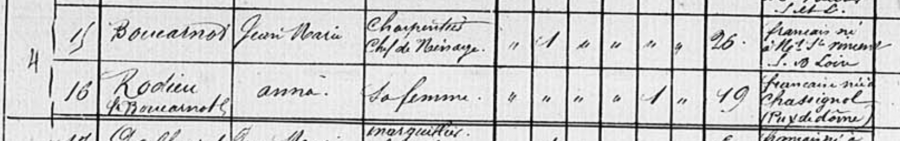 S. et L.
4
15 Boucarnot Jean Marie Charpentier Chef de Ménage. " 1 " " " " 26. français né à Mt St Vincent S. & Loire
16 Rodieu fe Boucarnot anna. sa femme. " " " " 1 " 19 francaise née à Chassignol (Puy de dôme)
17 marguillier